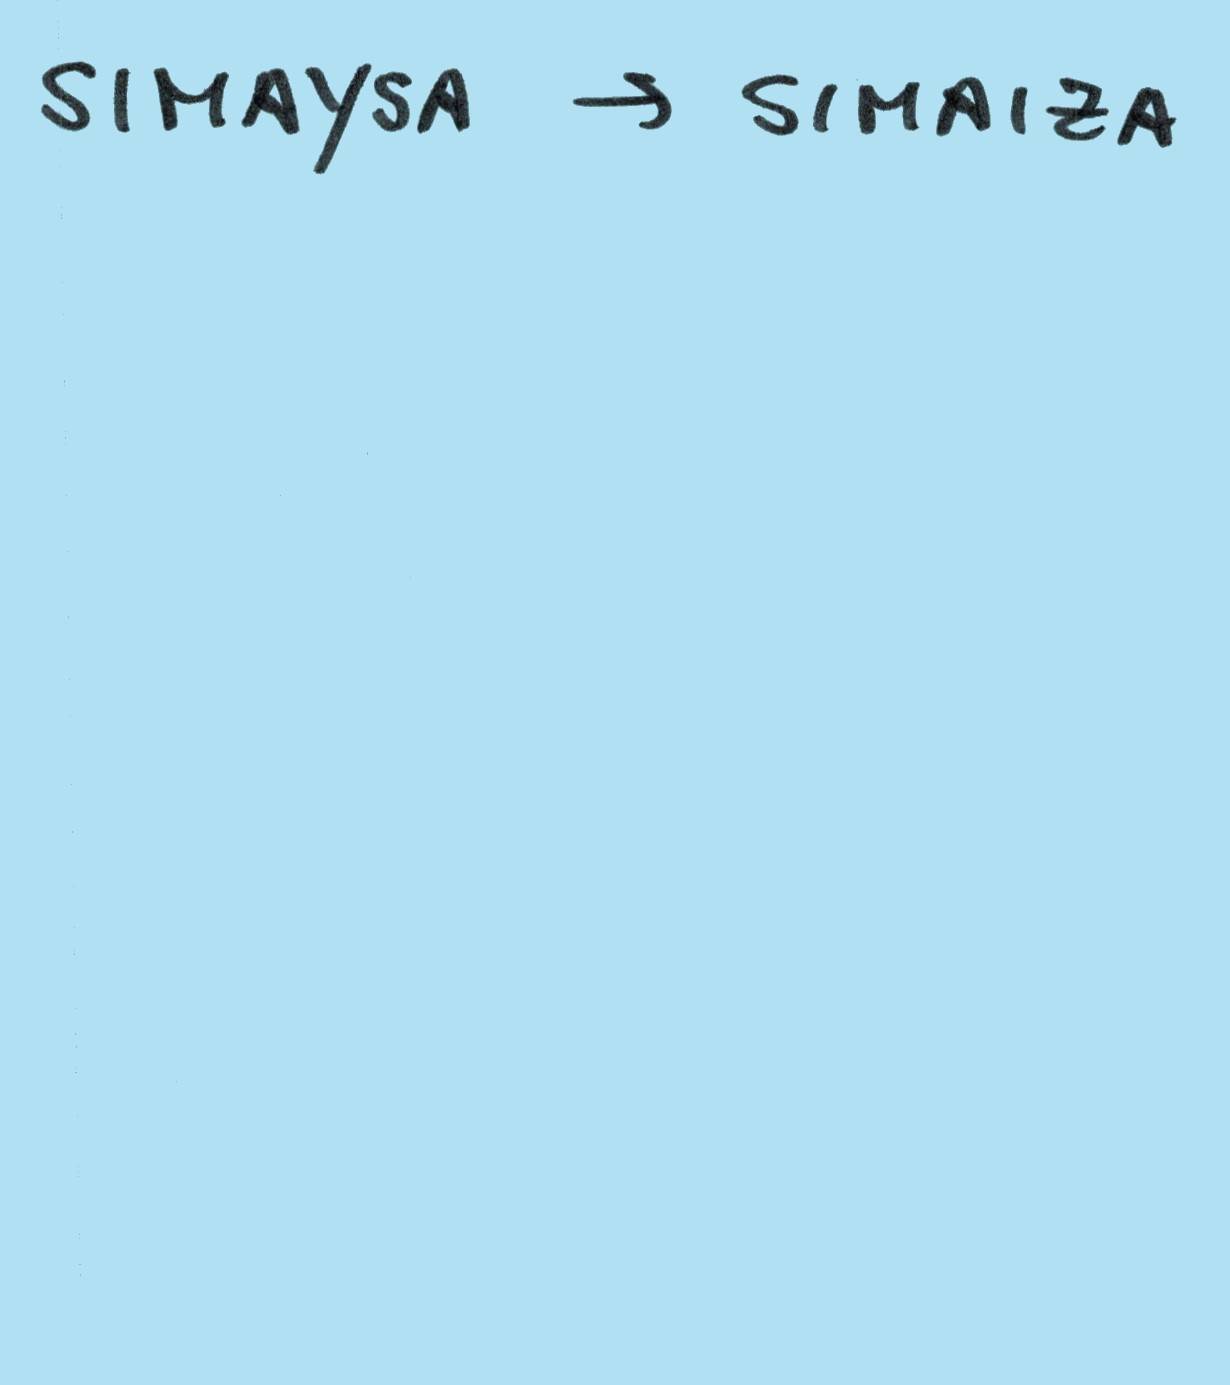 SIMAYSA → SIMAIZA